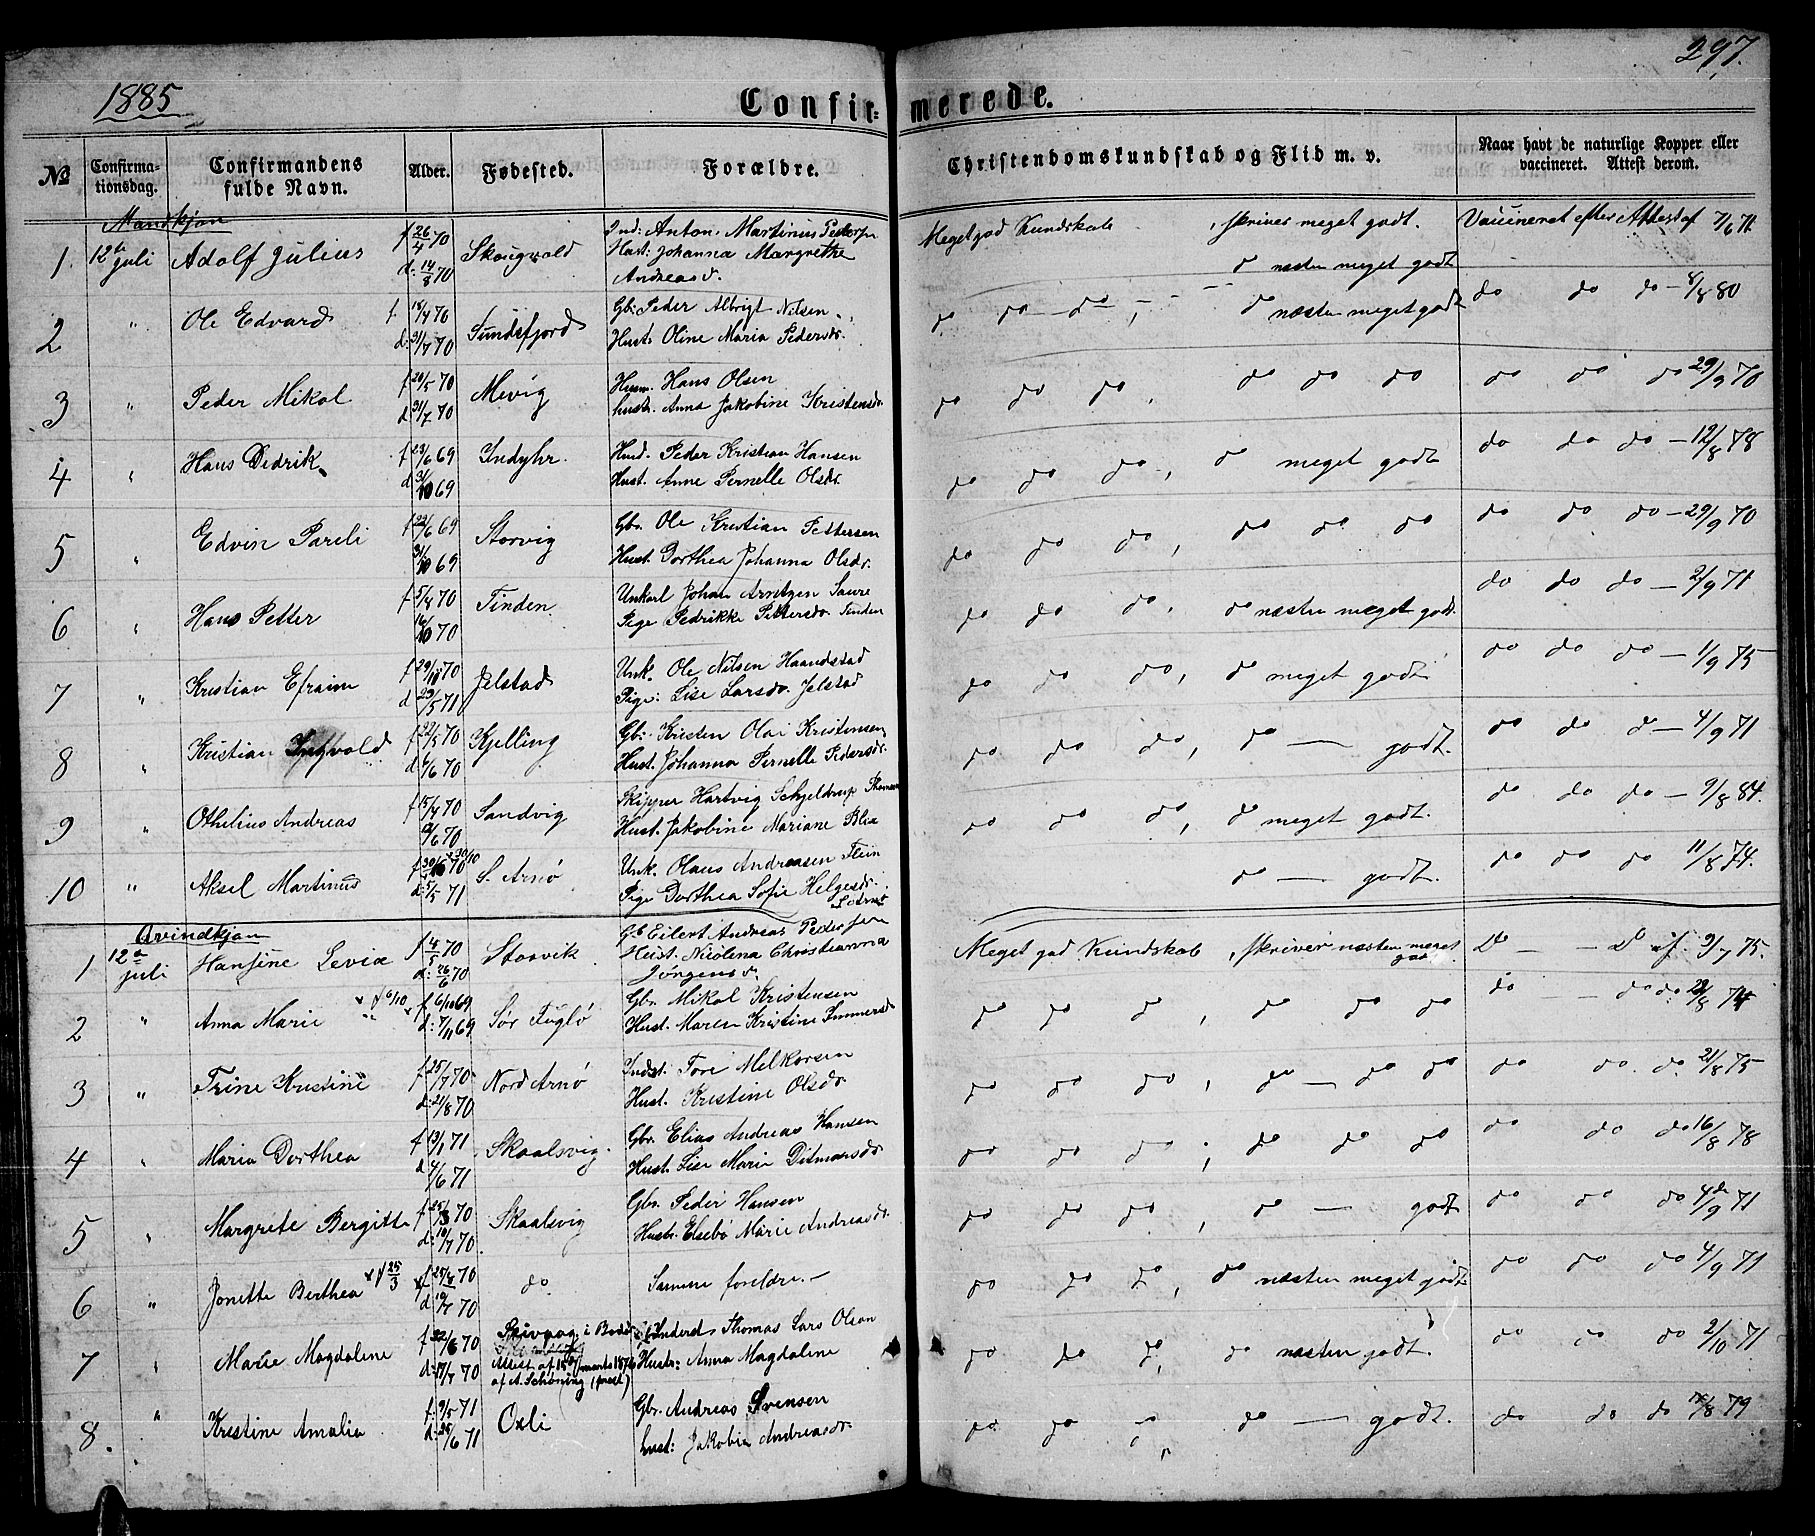 1885
297.
Confir-merede.
№
Confirma-tionsdag.
Confirmandens fulde Navn.
Alder.
Fødested.
Forældre.
Christendomskundskab og Flid m. v.
Naar havt de naturlige Kopper eller vaccineret. Attest derom.
Mandkjøn
1. 12te juli Adolf Julius f 26/4 70 d: 14/8 70 Skougvold Ind: Anton Martinus Peders.
Hust: Johanna Margrethe Andreasd. Meget god Kundskab, skriver meget godt. Vaccineret efter Attest af 7/6 71.
do næsten meget godt
2 " Ole Edvard f. 15/4 70 d: 31/7 70 Sundsfjord Gbr: Peder Albrigt Nilsen
Hust: Oline Maria Pedersdr. do do do, do næsten meget godt do do do - 8/8 80
3 " Peder Mikal f 20/5 70 d 31/7 70 Mevig Husm. Hans Olsen
hust: Anna Jakobine Kristensdr do do do, do do do do do do 29/9 70
4 " Hans Didrik f 23/6 69 d 31/10 69 Indyhr. Husm. Peder Kristian Hansen
Hust. Anne Pernelle Olsdr. do do do, do meget godt do do do - 12/8 78
5 " Edvin Pareli f 22/6 69 31/10 69 Storvig Gbr. Ole Kristian Pettersen
Hust. Dorthea Johanna Olsdr. do do do, do do do do do do - 29/9 70
6 " Hans Petter f 5/8 70 16/10 70 Tinden Unkarl Johan Arntzen Saure
Pige Pedrikke Pettersdr. Tinden do do do, do næsten meget godt. do do do - 2/9 71
7 " Kristian Efraim f 29/11 70 d 29/5 71 Jelstad Unk. Ole Nilsen Haandstad
Pige: Lise Larsdr. Jelstad do do do, do meget godt do do do - 1/9 75
8 " Kristian Ingvald f 22/5 70 d 6/6 70 Kjelling Gbr. Kristen Olai Kristensen
Hust. Johanna Pernelle Pedersdr. do do do, do — godt. do do do - 4/9 71
9 " Othelius Andreas f 15/4 70 12/6 70 Sandvig Skipper Hartvig Schjeldrup Thomas
Hust. Jakobine Mariane Blix do do do, do meget godt. do do do - 9/8 84.
10 " Aksel Martinus 30/10 70 d. 5/5 71 S. Arnø Unk. Olaus Andreasen Flein
Pige Dorthea Sofie Helgesdr. S. Arnø do — godt. do do do 11/8 74.
Qvindekjøn
1 12te juli Hansine Levia f 4/5 70 d: 26/6 70 Storvik Gb. Eilert Andreas Pedersen
Hust. Nicolina Christianna Jørgensd. Meget god Kundskab, skriver næsten meget godt. Do - - Do af 9/7 75.
2 " Anna Marie x f 6/10 x f 6/10 69 d: 7/11 69 Sør Fuglø Gbr. Mikal Kristensen
Hust. Maren Kristine Immersdr do do do, do do do do - do do 22/8 74
3 " Trine Kristine f 25/7 70 d: 21/8 70 Nord Arnø Indst. Tore Melkorsen
Hust. Kristine Olsdr. do do do, do — do do do do. do. 21/8 75
4 " Maria Dorthea f 13/1 71 d 4/6 71 Skaalsvig. Gbr. Elias Andreas Hansen
Hust. Lise Marie Ditmarsdr. do do do, do do do do do do 16/8 78
5 " Margrete Bergitte f 25/3 70 d: 10/7 70 Skaalsvig Gbr. Peder Hansen
Hustr. Elsebø Marie Andreasdr. do do do, do — godt do do do 4/9 71
6 " Jonette Berthea x f 25/3 x f 25/4 70 d. 10/7 70 do. Samme foreldre. — do do do, do næsten meget godt do do do 4/9 71
7 " Marie Magdalene f 22/6 70 d: 17/7 70 Skivaag i Bodø
Attest af 15/martz 187
af A. Schøning, (prest) Inderst Thomas Lars Olsen
Hustr: Anna Magdaline do do do, do næsten godt. do do do 2/10 71
8. " Kristine Amalia f. 9/5 71 d: 25/6 71 Oxli Gbr. Andreas Svensen
hust: Jakobia Andreasdr. do do do, do — godt. do do do 12/8 79